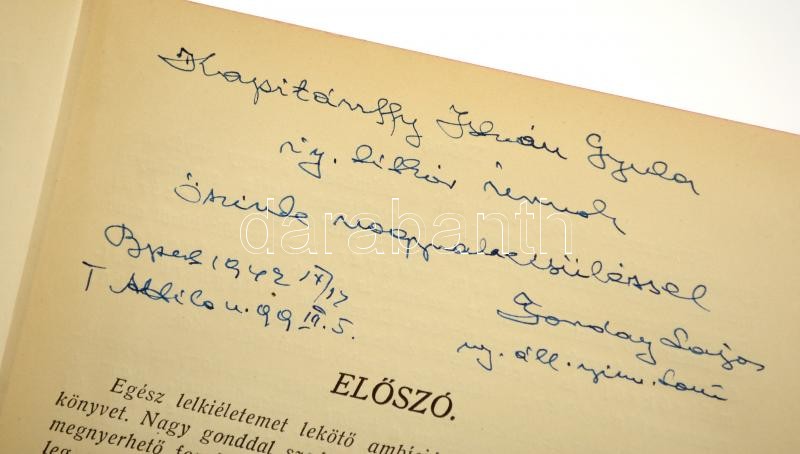 Kapitánffy István Gyula
ig. titkár úrnak
őszinte nagyrabecsüléssel
Bpest 1942 IX/17
I Attila u. 99 III. 5.
Gonday Lajos
ny. áll.
darabanth
ELŐSZÓ.
Egész lelkiéletemet lekötő
könyvet. Nagy gonddal
megnyerhető
leg